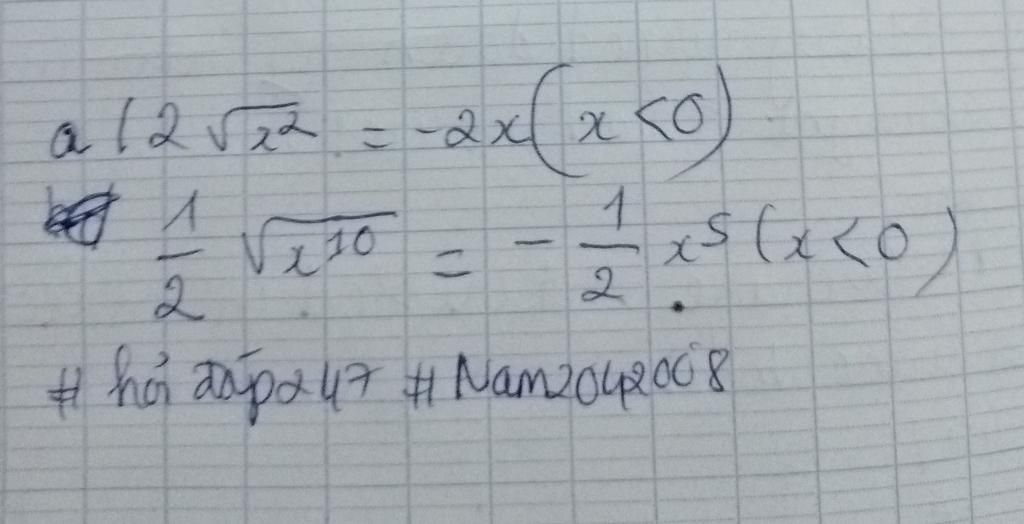 a / 2 √x² = -2x ( x < 0 )
1/2 √x¹⁰ = - 1/2 x⁵ ( x < 0 )
# hỏi đáp247 #Nam2042008